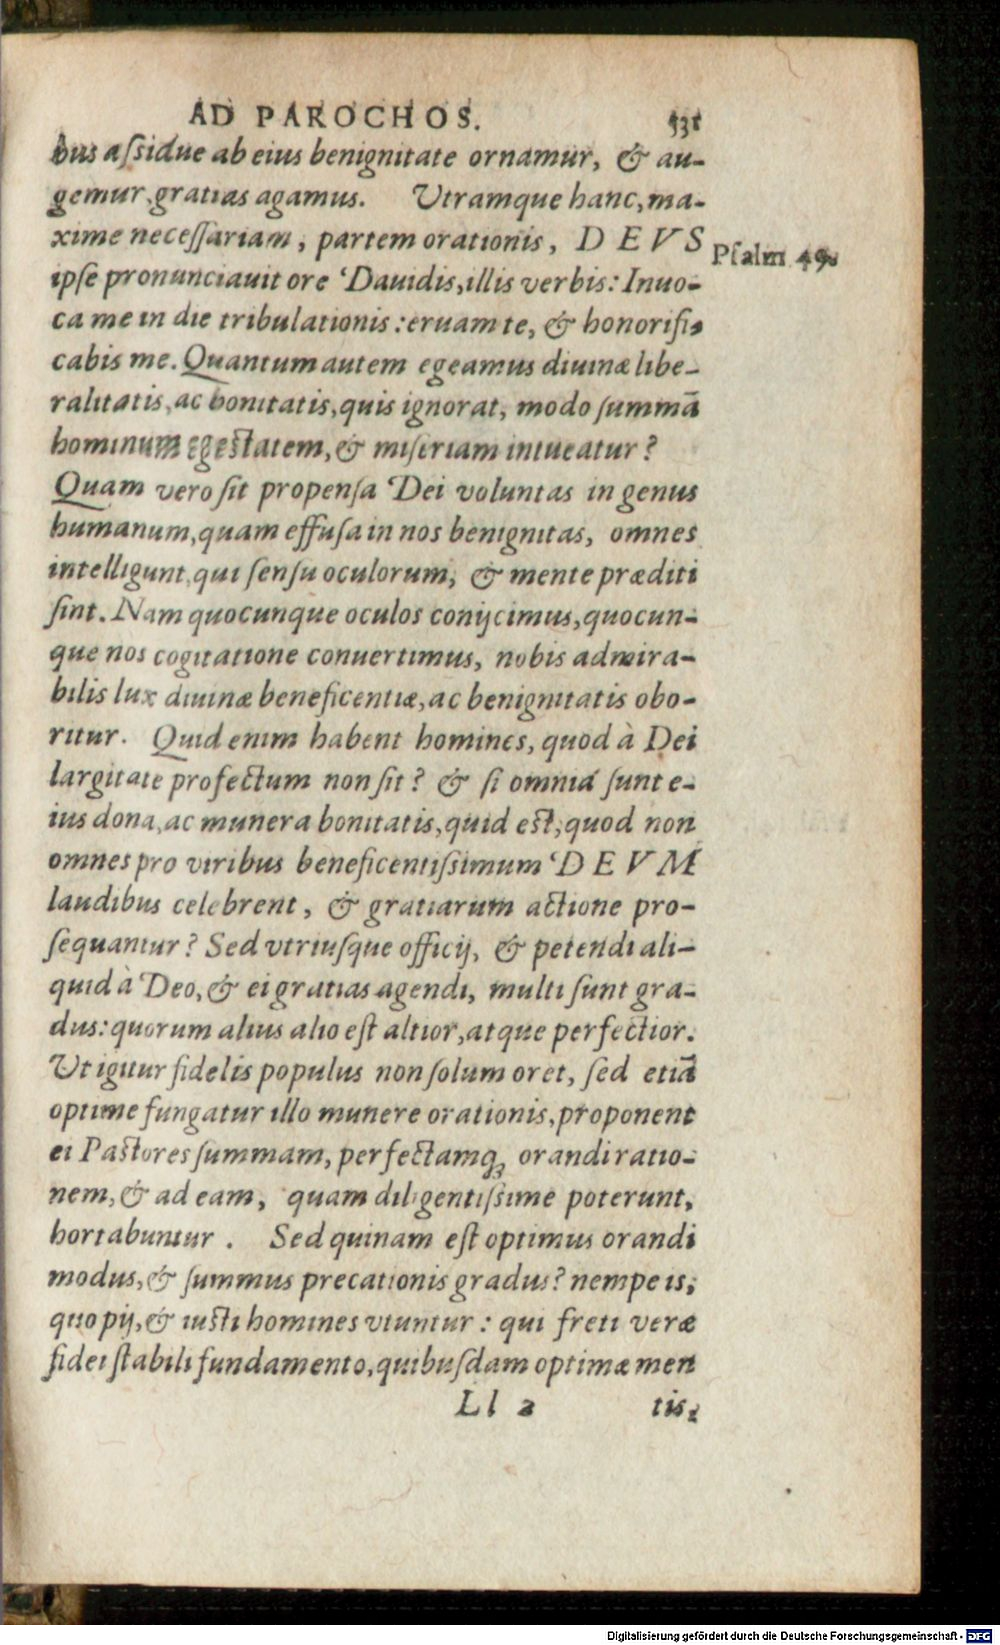 AD PAROCHOS. 531
bus aſsidue ab eius benignitate ornamur, & au-
gemur, gratias agamus. Vtramque hanc, ma-
xime neceſſariam, partem orationis, DEVS
Pſalm. 49.
ipſe pronunciauit ore Dauidis, illis verbis: Inuo-
ca me in die tribulationis: eruam te, & honorifi-
cabis me. Quantum autem egeamus diuinæ libe-
ralitatis, ac bonitatis, quis ignorat, modo ſummā
hominum egeſtatem, & miſeriam intueatur?
Quam vero ſit propenſa Dei voluntas in genus
humanum, quam effuſa in nos benignitas, omnes
intelligunt, qui ſenſu oculorum, & mente præditi
ſint. Nam quocunque oculos conijcimus, quocun-
que nos cogitatione conuertimus, nobis admira-
bilis lux diuinæ beneficentiæ, ac benignitatis obo-
ritur. Quid enim habent homines, quod à Dei
largitate profectum non ſit? & ſi omnia ſunt e-
ius dona, ac munera bonitatis, quid eſt, quod non
omnes pro viribus beneficentiſsimum DEVM
laudibus celebrent, & gratiarum actione pro-
ſequantur? Sed vtriuſque officij, & petendi ali-
quid à Deo, & ei gratias agendi, multi ſunt gra-
dus: quorum alius alio eſt altior, atque perfectior.
Vt igitur fidelis populus non ſolum oret, ſed etiā
optime fungatur illo munere orationis, proponent
ei Paſtores ſummam, perfectamq; orandi ratio-
nem, & ad eam, quam diligentiſsime poterunt,
hortabuntur. Sed quinam eſt optimus orandi
modus, & ſummus precationis gradus? nempe is,
quo pij, & iuſti homines vtuntur: qui freti veræ
fidei ſtabili fundamento, quibuſdam optimæ men
Ll 2 tis,
Digitalisierung gefördert durch die Deutsche Forschungsgemeinschaft - DFG